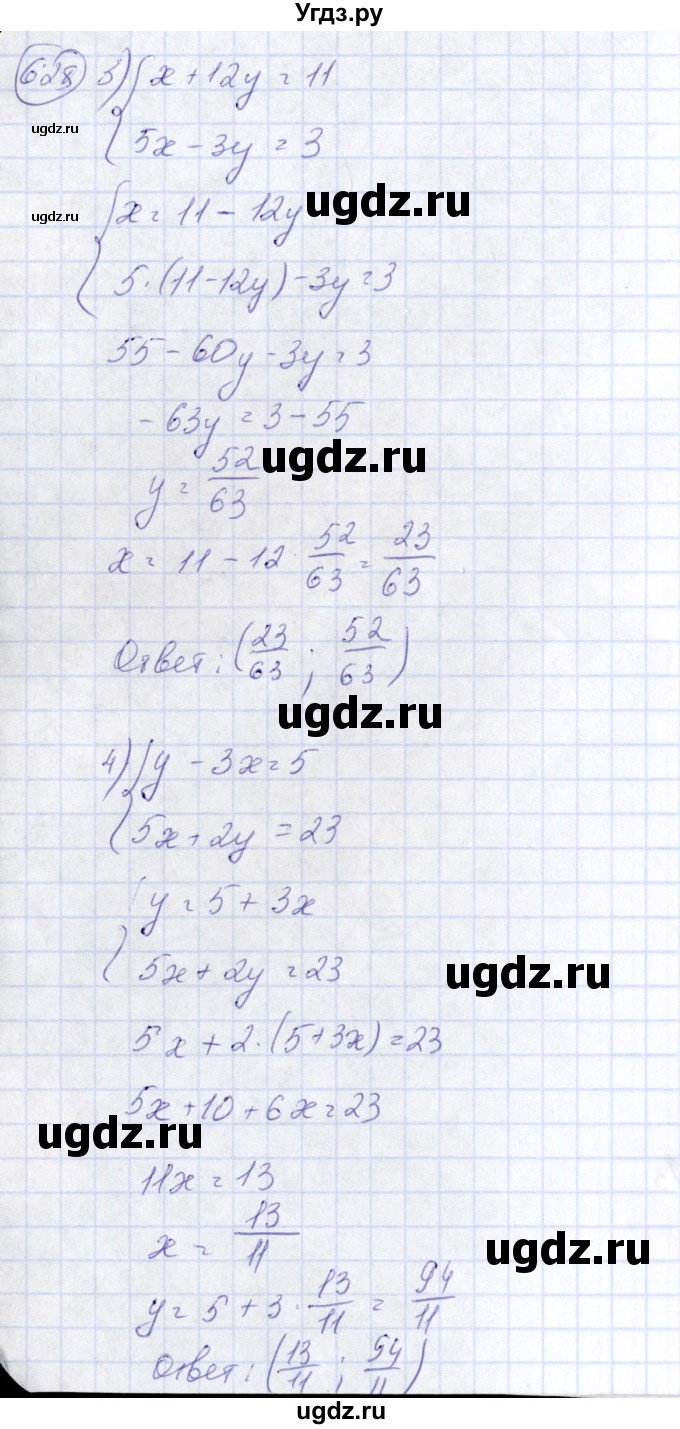 Угдз.ру
628 3) { x + 12y = 11
ugdz.ru
5x - 3y = 3
ugdz.ru
ugdz.ru
{ x = 11 - 12y
5·(11-12y) - 3y = 3
55 - 60y - 3y = 3
- 63y = 3 - 55
ugdz.ru
y = 52/63
x = 11 - 12 · 52/63 = 23/63
Ответ: (23/63 ; 52/63)
ugdz.ru
4) { y - 3x = 5
5x + 2y = 23
{ y = 5 + 3x
5x + 2y = 23
ugdz.ru
5x + 2·(5+3x) = 23
5x + 10 + 6x = 23
ugdz.ru
11x = 13
x = 13/11
ugdz.ru
y = 5 + 3 · 13/11 = 94/11
Ответ: (13/11 ; 94/11)
ugdz.ru